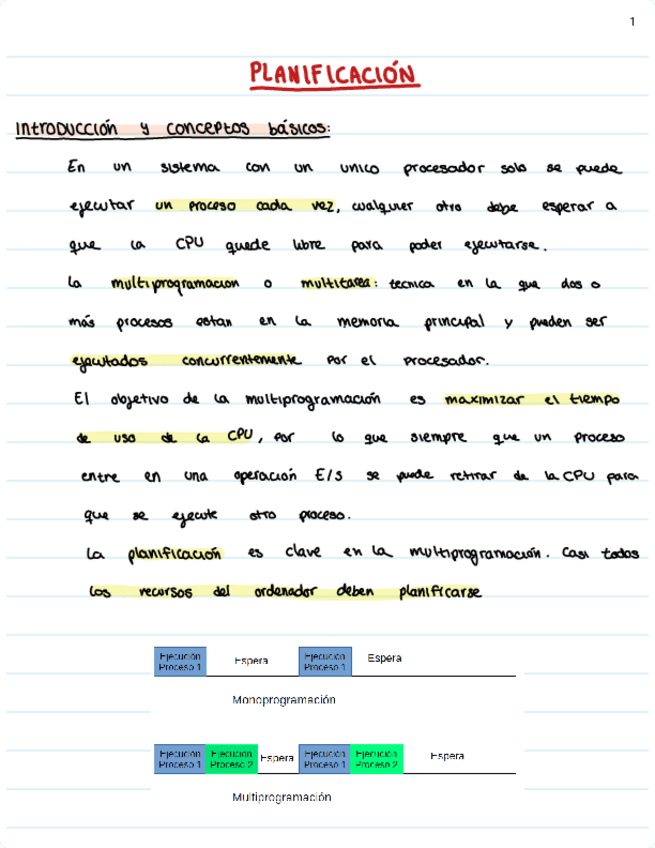 1
PLANIFICACIÓN
Introducción y conceptos básicos:
En un sistema con un unico procesador solo se puede
ejecutar un proceso cada vez, cualquier otro debe esperar a
que la CPU quede libre para poder ejecutarse.
La multiprogramacion o multitarea: tecnica en la que dos o
más procesos estan en la memoria principal y pueden ser
ejecutados concurrentemente por el procesador.
El objetivo de la multiprogramación es maximizar el tiempo
de uso de la CPU, por lo que siempre que un proceso
entre en una operación E/S se puede retirar de la CPU para
que se ejecute otro proceso.
La planificación es clave en la multiprogramación. Casi todos
los recursos del ordenador deben planificarse
Ejecución Proceso 1 Espera Ejecución Proceso 1 Espera
Monoprogramación
Ejecución Proceso 1 Ejecución Proceso 2 Espera Ejecución Proceso 1 Ejecución Proceso 2 Espera
Multiprogramación